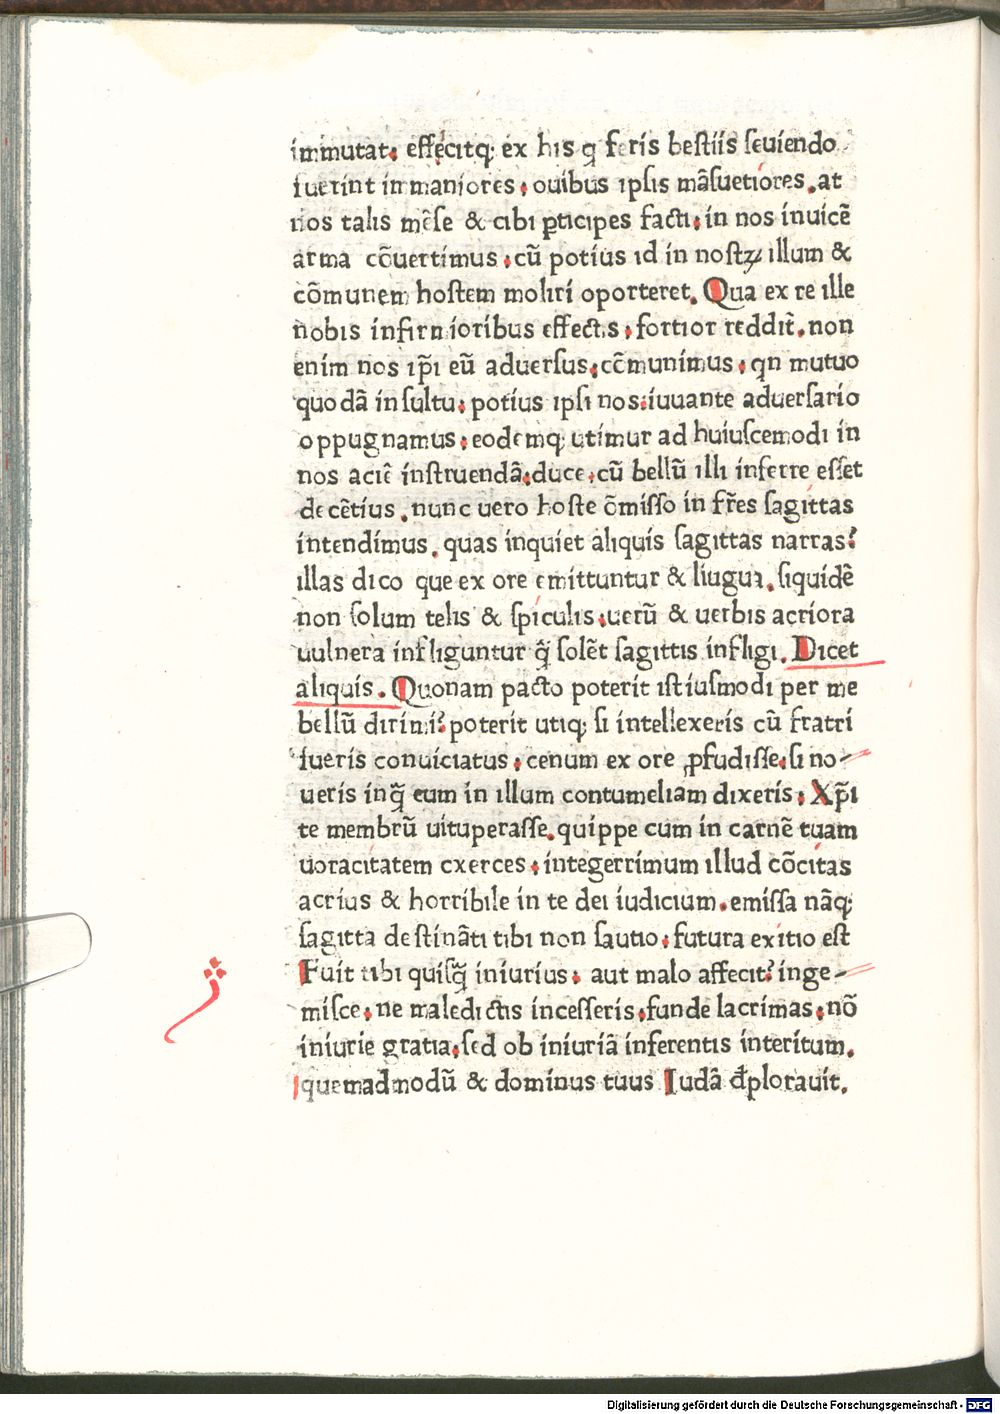 immutat; effęcitq; ex his q̄ feris bestiis seuiendo
fuerint inmaniores; ouibus ipsis mãsuetiores. at
nos talis mẽse & cibi ꝑticipes facti; in nos inuicẽ
arma cõuertimus; cũ potius id in nostꝝ illum &
cõmunem hostem moliri oporteret. Qua ex re ille
nobis infirmioribus effectis; fortior reddit̃. non
enim nos ip̃i eũ aduersus; cõmunimus; qn mutuo
quodã insultu; potius ipsi nos; iuuante aduersario
oppugnamus; eodemq; utimur ad huiuscemodi in
nos aciẽ instruendã; duce; cũ bellũ illi inferre esset
decẽtius. nunc uero hoste õmisso in fr̃es sagittas
intendimus. quas inquiet aliquis sagittas narras?
illas dico que ex ore emittuntur & liugua. siquidẽ
non solum telis & spiculis; uerũ & uerbis acriora
uulnera infliguntur q̃ solẽt sagittis infligi. Dicet
aliquis. Quonam pacto poterit istiusmodi per me
bellũ dirimi? poterit utiq; si intellexeris cũ fratri
fueris conuiciatus; cenum ex ore ꝓfudisse; si no-
ueris inq̃ eum in illum contumeliam dixeris; Xp̃i
te membrũ uituperasse. quippe cum in carnẽ tuam
uoracitatem exerces; integerrimum illud cõcitas
acrius & horribile in te dei iudicium. emissa nãq;
sagitta destinãti tibi non sautio; futura exitio est
Fuit tibi quisq̃ iniurius; aut malo affecit? inge-
misce; ne maledictis incesseris; funde lacrimas; nõ
iniurie gratia; sed ob iniuriã inferentis interitum.
quemadmodũ & dominus tuus Iudã đplorauit.
Digitalisierung gefördert durch die Deutsche Forschungsgemeinschaft - DFG